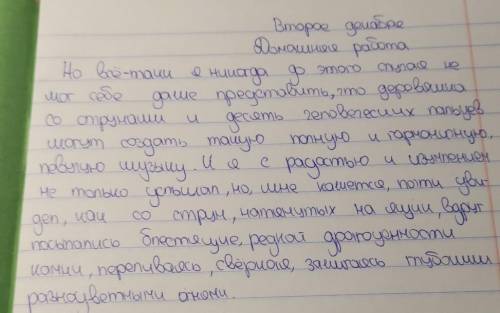 Второе декабря
Домашняя работа
Но всё-таки я никогда до этого случая не
мог себе даже представить, что деревяшка
со струнами и десять человеческих пальцев
могут создать такую полную и гармоничную,
певучую музыку. И я с радостью и изумлением
не только услышал, но, мне кажется, почти уви-
дел, как со струн, натянутых на ящик, вдруг
посыпались блестящие, редкой драгоценности
камни, переливаясь, сверкая, зажигаясь глубокими
разноцветными огнями.